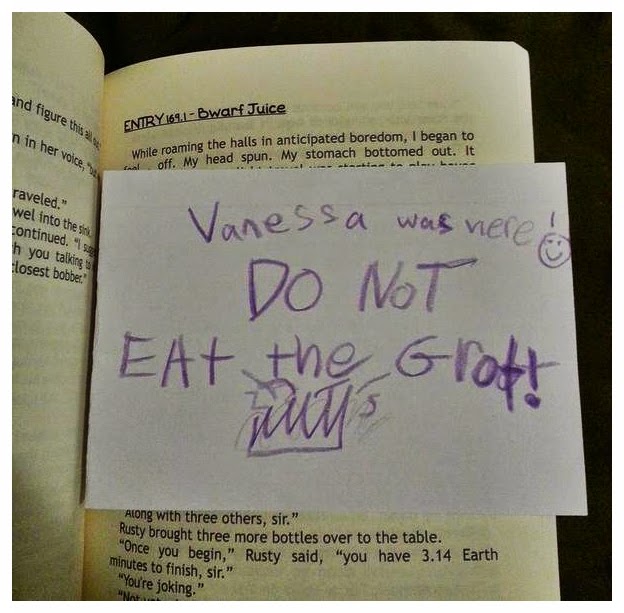 and figure this all
in her voice,
raveled."
wel into the sink
continued. "I
h you talking to
closest bobber."
ENTRY 169.1 - Bwarf Juice
While roaming the halls in anticipated boredom, I began to
off. My head spun. My stomach bottomed out. It
was starting to play house
Vanessa was here!
DO NOT
EAt the Grot!
Along with three others, sir."
Rusty brought three more bottles over to the table.
"Once you begin," Rusty said, "you have 3.14 Earth
minutes to finish, sir."
"You're joking."